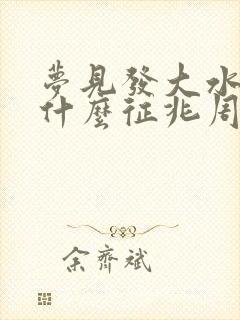 夢見發大水
什麼征兆周
余齊斌